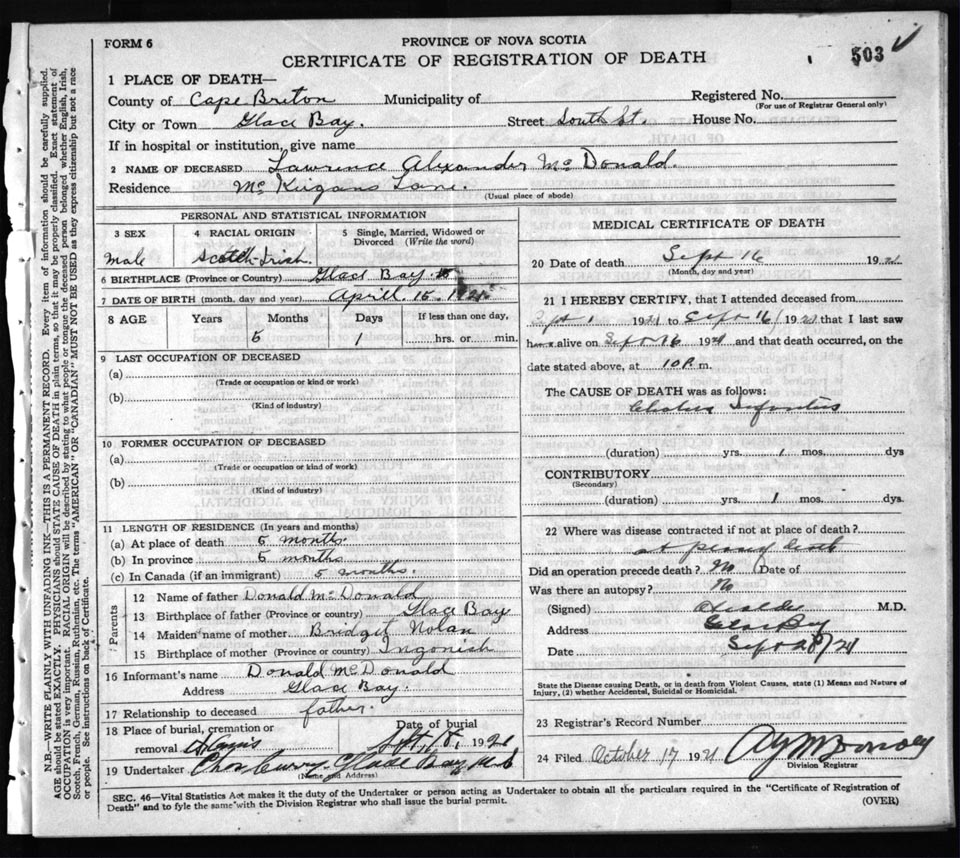 FORM 6
PROVINCE OF NOVA SCOTIA
CERTIFICATE OF REGISTRATION OF DEATH
503
1 PLACE OF DEATH—
County of Cape Breton Municipality of Registered No.
(For use of Registrar General only)
City or Town Glace Bay. Street South St. House No.
If in hospital or institution, give name
2 NAME OF DECEASED Lawrence Alexander McDonald.
Residence Mc Keigans Lane.
(Usual place of abode)
PERSONAL AND STATISTICAL INFORMATION
3 SEX
male
4 RACIAL ORIGIN
Scotch-Irish.
5 Single, Married, Widowed or Divorced (Write the word)
6 BIRTHPLACE (Province or Country) Glace Bay.
7 DATE OF BIRTH (month, day and year) Aprill. 15. 1921
8 AGE Years Months Days If less than one day,
5 1 hrs. or min.
9 LAST OCCUPATION OF DECEASED
(a)
(Trade or occupation or kind or work)
(b)
(Kind of industry)
10 FORMER OCCUPATION OF DECEASED
(a)
(Trade or occupation or kind of work)
(b)
(Kind of industry)
11 LENGTH OF RESIDENCE (In years and months)
(a) At place of death 5 months.
(b) In province 5 months
(c) In Canada (if an immigrant) 5 months.
Parents
12 Name of father Donald McDonald
13 Birthplace of father (Province or country) Glace Bay
14 Maiden name of mother Bridget Nolan
15 Birthplace of mother (Province or Country) Ingonish
16 Informant's name Donald McDonald
Address Glace Bay.
17 Relationship to deceased father.
18 Place of burial, cremation or removal
Date of burial
Sept, 18, 1921
19 Undertaker Chas Curry. Glace Bay
(Name and Address)
MEDICAL CERTIFICATE OF DEATH
20 Date of death Sept 16 1921
(Month, day and year)
21 I HEREBY CERTIFY, that I attended deceased from
Sept 1 1921 to Sept 16 1921 that I last saw
h alive on Sept 16 1921 and that death occurred, on the
date stated above, at 10 P. m.
The CAUSE OF DEATH was as follows:
Cholera Infantum
(duration) yrs. 1 mos. dys
CONTRIBUTORY
(Secondary)
(duration) yrs. 1 mos. dys.
22 Where was disease contracted if not at place of death?
at place death
Did an operation precede death? No Date of
Was there an autopsy? No
(Signed) M.D.
Address Glace Bay
Date Sept 28/21
State the Disease Causing Death, or in death from Violent Causes, state (1) Means and Nature of
Injury, (2) whether Accidental, Suicidal or Homicidal.
23 Registrar's Record Number
24 Filed October 17 1921
Division Registrar
SEC. 46—Vital Statistics Act makes it the duty of the Undertaker or person acting as Undertaker to obtain all the particulars required in the "Certificate of Registration of
Death" and to fyle the same with the Division Registrar who shall issue the burial permit.
(OVER)
N.B.—WRITE PLAINLY WITH UNFADING INK—THIS IS A PERMANENT RECORD. Every item of information should be carefully supplied.
AGE should be stated EXACTLY. PHYSICIANS should STATE CAUSE OF DEATH in plain terms, so that it may be properly classified. Exact statement of
OCCUPATION is very important. RACIAL ORIGIN will be described by stating to what people or tongue the deceased person belonged whether English, Irish,
Scotch, French, German, Russian, Ruthenian, etc. The terms "AMERICAN" OR "CANADIAN" MUST NOT BE USED as they express citizenship but not a race
or people. See instructions on back of Certificate.